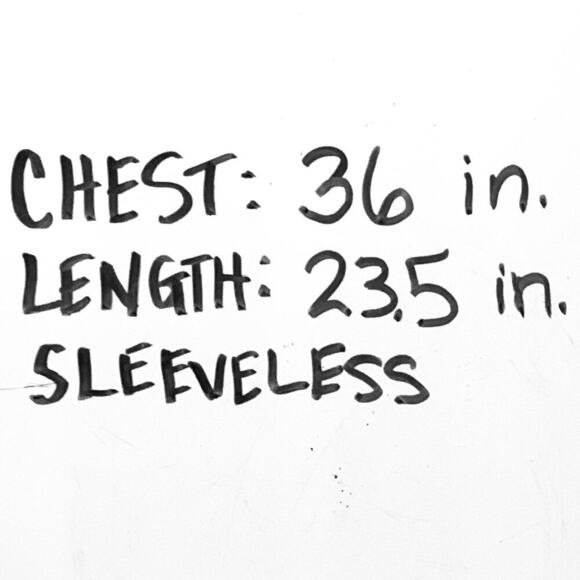 CHEST: 36 in.
LENGTH: 23.5 in.
SLEEVELESS